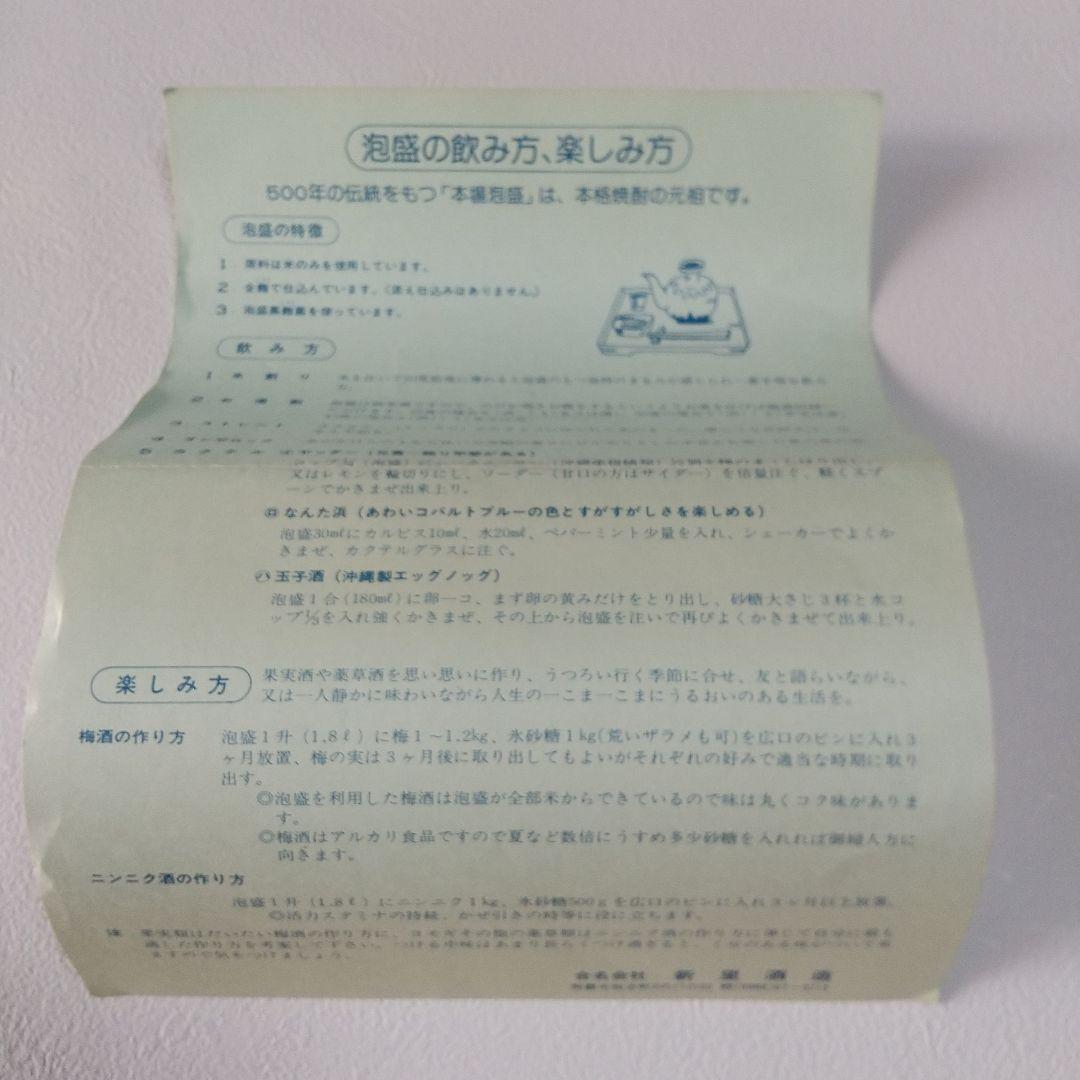 泡盛の飲み方、楽しみ方
500年の伝統をもつ「本場泡盛」は、本格焼酎の元祖です。
泡盛の特徴
1 原料は米のみを使用しています。
2 全麹で仕込んでいます。(添え仕込みはありません。)
3 泡盛黒麹菌を使っています。
飲み方
1 水割り
2 お湯割
3 ストレート
4 オンザロック
5 カクテル
又はレモンを輪切りにし、ソーダー(甘口の方はサイダー)を倍量注ぐ、軽くスプ
ーンでかきまぜ出来上り。
㋺ なんた浜(あわいコバルトブルーの色とすがすがしさを楽しめる)
泡盛30mlにカルピス10ml、水20ml、ペパーミント少量を入れ、シェーカーでよくか
きまぜ、カクテルグラスに注ぐ。
㋩ 玉子酒(沖縄製エッグノッグ)
泡盛1合(180ml)に卵一コ、まず卵の黄みだけをとり出し、砂糖大さじ3杯と水コ
ップ⅕を入れ強くかきまぜ、その上から泡盛を注いで再びよくかきまぜて出来上り。
楽しみ方
果実酒や薬草酒を思い思いに作り、うつろい行く季節に合せ、友と語らいながら、
又は一人静かに味わいながら人生の一こま一こまにうるおいのある生活を。
梅酒の作り方
泡盛1升(1.8ℓ)に梅1~1.2kg、氷砂糖1kg(荒いザラメも可)を広口のビンに入れ3
ヶ月放置、梅の実は3ヶ月後に取り出してもよいがそれぞれの好みで適当な時期に取り
出す。
◎泡盛を利用した梅酒は泡盛が全部米からできているので味は丸くコク味がありま
す。
◎梅酒はアルカリ食品ですので夏など数倍にうすめ多少砂糖を入れれば御婦人方に
向きます。
ニンニク酒の作り方
泡盛1升(1.8ℓ)にニンニク1kg、氷砂糖500gを広口のビンに入れ3ヶ月以上放置。
◎活力スタミナの持続、かぜ引きの時等に役に立ちます。
注 果実類はだいたい梅酒の作り方に、ヨモギその他の薬草類はニンニク酒の作り方に準じて自分に最も
適した作り方を考案して下さい。
ますので気をつけましょう。
合名会社 新里酒造